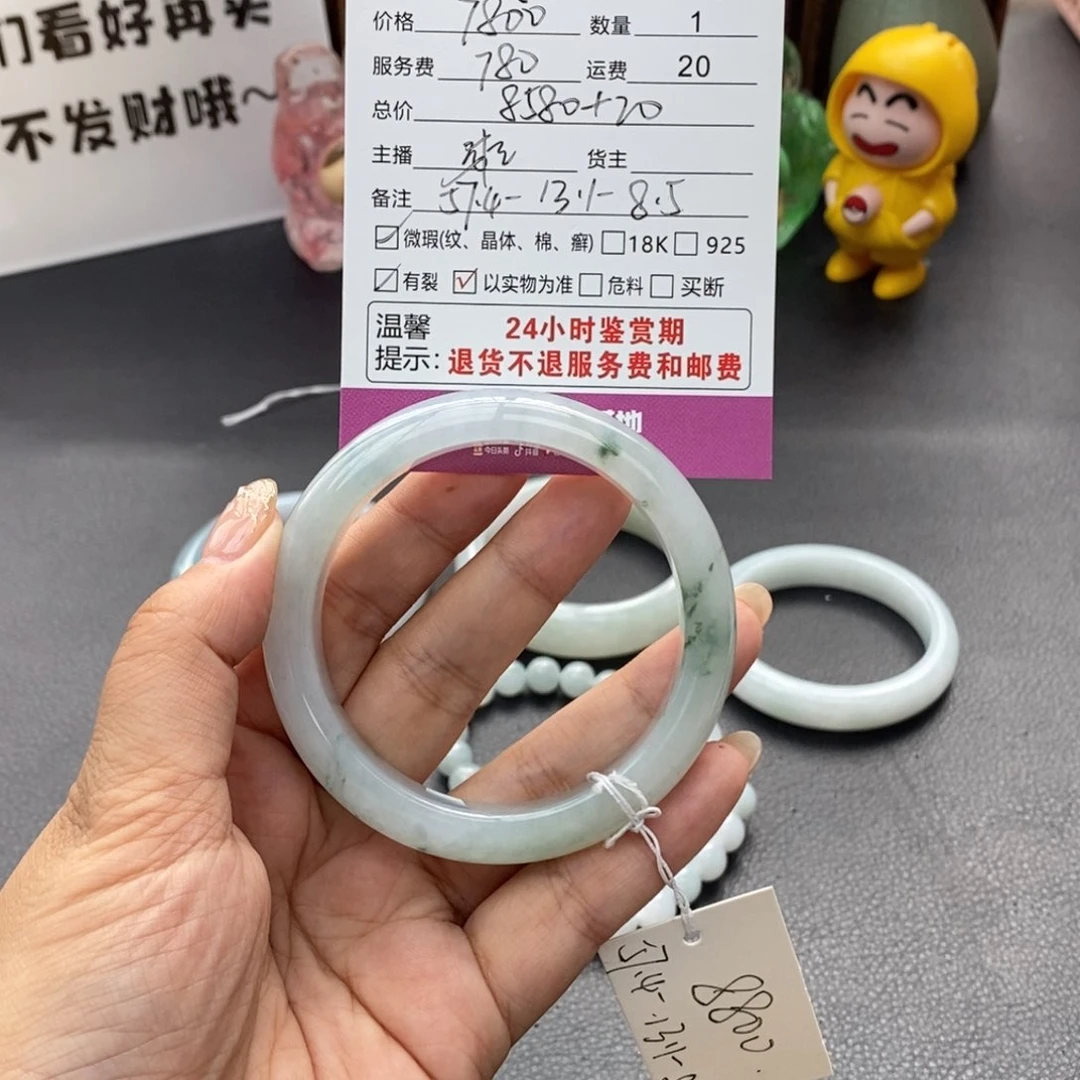 们看好再买
不发财哦~
价格 7800 数量 1
服务费 780 运费 20
总价 8580+20
主播 货主
备注 57.4-13.1-8.5
微瑕(纹、晶体、棉、癣) 18K 925
有裂 以实物为准 危料 买断
温馨提示: 24小时鉴赏期
退货不退服务费和邮费
今日头条 抖音
8800
57.4-13.1-